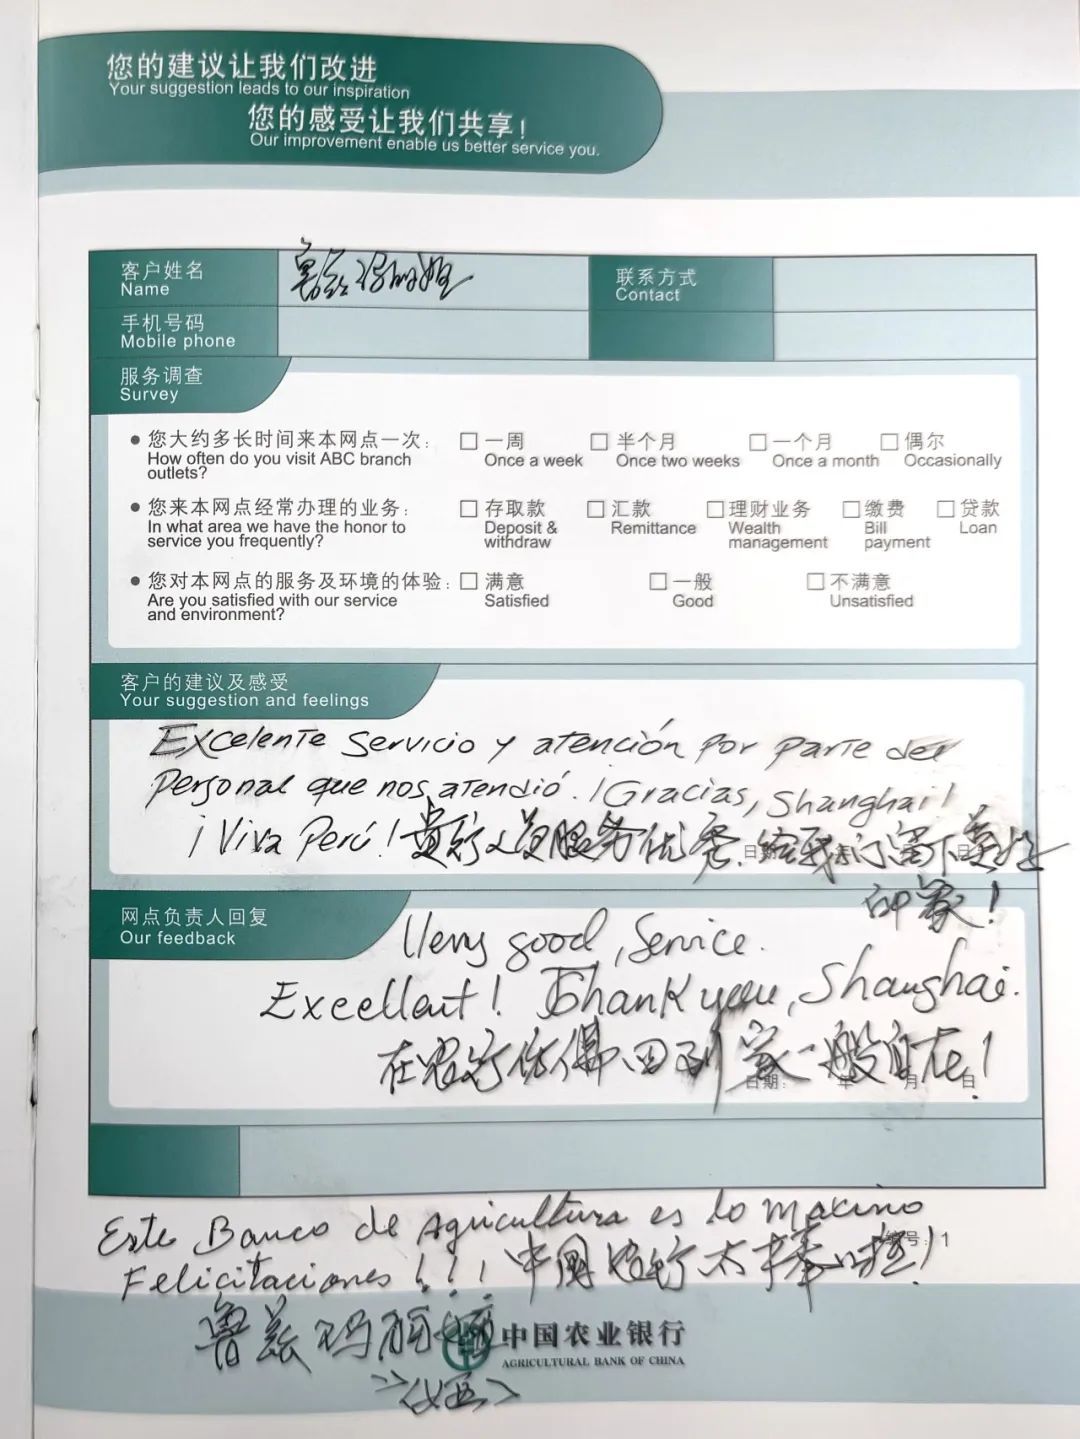 您的建议让我们改进
Your suggestion leads to our inspiration
您的感受让我们共享!
Our improvement enable us better service you.
客户姓名
Name
联系方式
Contact
手机号码
Mobile phone
服务调查
Survey
您大约多长时间来本网点一次: □一周 □半个月 □一个月 □偶尔
How often do you visit ABC branch Once a week Once two weeks Once a month Occasionally
outlets?
您来本网点经常办理的业务: □存取款 □汇款 □理财业务 □缴费 □贷款
In what area we have the honor to Deposit & Remittance Wealth Bill Loan
service you frequently? withdraw management payment
您对本网点的服务及环境的体验: □满意 □一般 □不满意
Are you satisfied with our service Satisfied Good Unsatisfied
and environment?
客户的建议及感受
Your suggestion and feelings
Excelente servicio y atención por parte del
personal que nos atendió. ¡Gracias, Shanghai!
¡Viva Perú! 贵行人员服务优秀.给我们留下美好
印象!
网点负责人回复
Our feedback
Very good, Service.
Excellent! Thank you, Shanghai.
在农行仿佛回到家一般自在!
日期: 年 月 日
Este Banco de Agricultura es lo maximo
编号:1
Felicitaciones!!! 中国农行太棒啦!
鲁兹玛丽娅
中国农业银行
AGRICULTURAL BANK OF CHINA